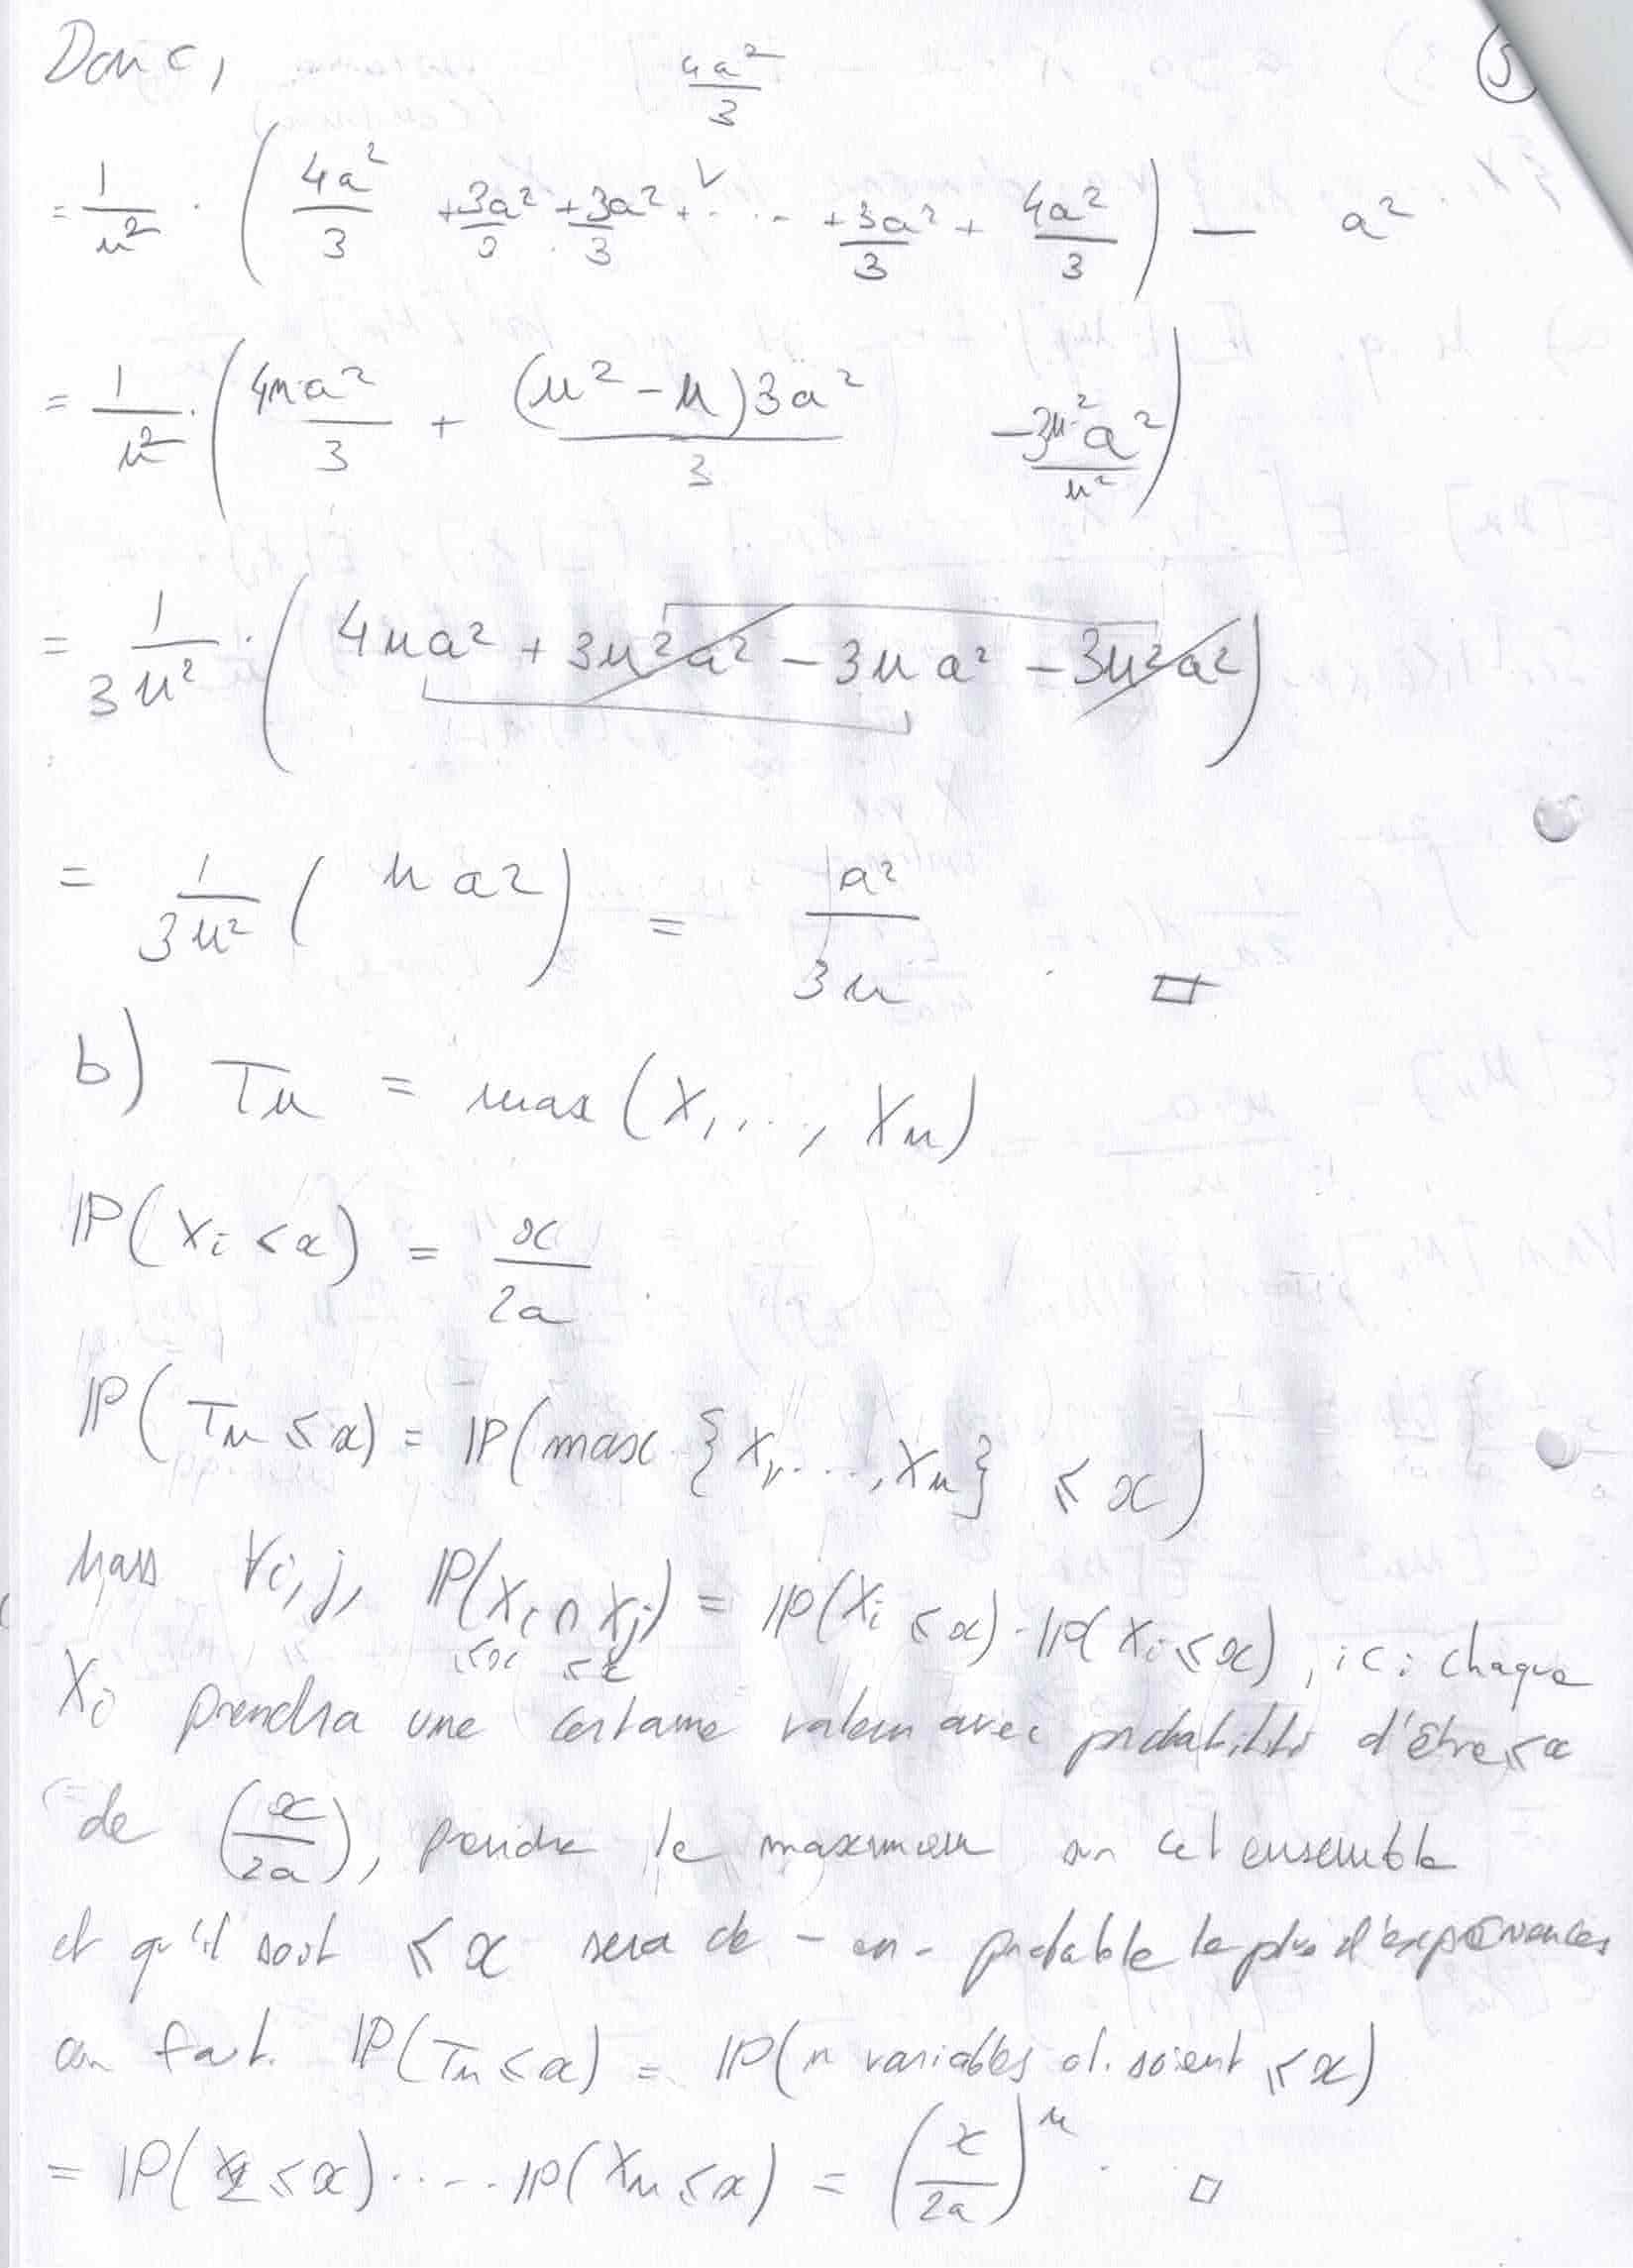 Donc,
4a²/3
⑤
= 1/n² · ( 4a²/3 + 3a²/3 + 3a²/3 + ... + 3a²/3 + 4a²/3 ) — a²
= 1/n² · ( 4na²/3 + (n²-n)3a²/3 -3n²a²/n² )
= 1/3n² · ( 4na² + 3n²a² - 3na² - 3n²a² )
= 1/3n² ( na² ) = a²/3n . □
b) Tn = max(X1,..., Xn)
ℙ(Xi ≤ x) = x/2a .
ℙ(Tn ≤ x) = ℙ(max {X1,...., Xn} ≤ x)
Mais ∀i,j, ℙ(Xi ∩ Xj) = ℙ(Xi ≤ x) · ℙ(Xi ≤ x), ici chaque
≤x ≤x
Xi prendra une certaine valeur avec probabilité d'être ≤ x
de (x/2a), prendre le maximum sur cet ensemble
et qu'il soit ≤ x sera de - en - probable le plus d'expériences
on fait. ℙ(Tn ≤ x) = ℙ(n variables al. soient ≤ x)
= ℙ(X1 ≤ x) ..... ℙ(Xn ≤ x) = (x/2a)ⁿ . □